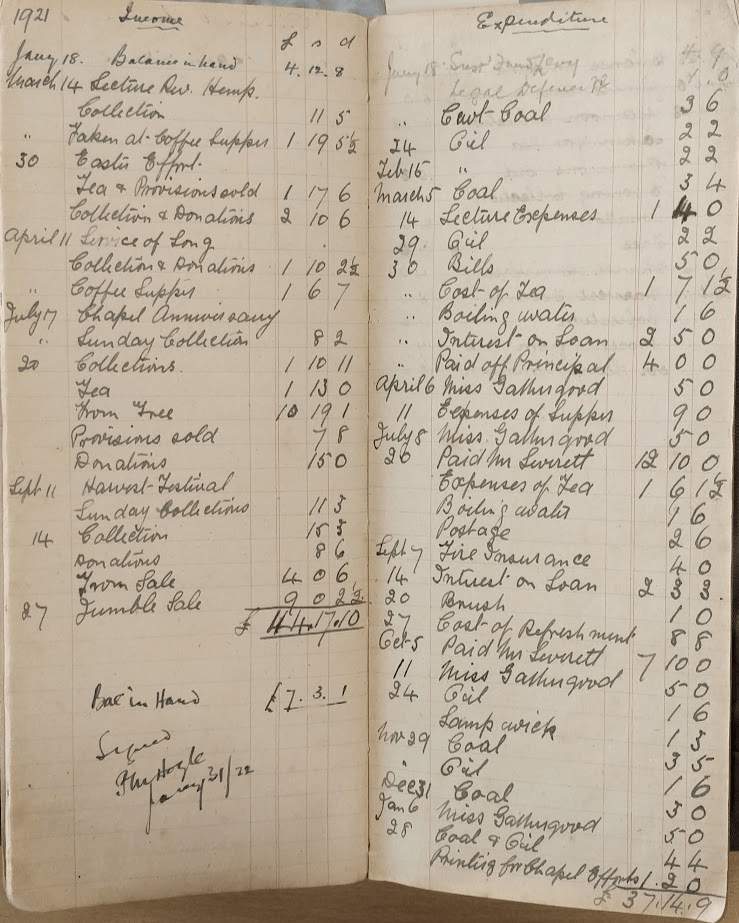 1921 Income
£ s d
Jany 18. Balance in hand 4. 12. 8
March 14 Lecture Rev. Hemp.
Collection 11 5
" Taken at Coffee Supper 1 19 5½
30 Easter Effort.
Tea & Provisions sold 1 17 6
Collection & Donations 2 10 6
April 11 Service of Song
Collection & Donations 1 10 2½
" Coffee Supper 1 6 7
July 17 Chapel Anniversary
" Sunday Collection 8 2
20 Collections. 1 10 11
Tea 1 13 0
From Tree 10 19 1
Provisions sold 7 8
Donations 15 0
Sept 11 Harvest Festival
Sunday Collections 11 3
14 Collection 15 3
Donations 8 6
From Sale 4 0 6
27 Jumble Sale 9 0 2½
£ 44.17.10
Bal in Hand £7. 3. 1
Signed
Jany 31/22
Expenditure
Jany 18 Sust Fund Levy 4 9
Legal Defence 1 0
" Cart Coal 3 6
24 Oil 2 2
Feb 15 " 2 2
March 5 Coal 3 4
14 Lecture Expenses 1 4 0
29 Oil 2 2
30 Bills 5 0
" Cost of Tea 1 7 1½
" Boiling water 1 6
" Interest on Loan 2 5 0
" Paid off Principal 4 0 0
April 6 Miss Gathergood 5 0
11 Expenses of Supper 9 0
July 8 Miss Gathergood 5 0
20 Paid Mr Leverett 12 10 0
Expenses of Tea 1 6 1½
Boiling water 1 6
Postage 2 6
Sept 7 Fire Insurance 4 0
14 Interest on Loan 2 3 3
20 Brush 1 0
27 Cost of Refreshment 8 8
Oct 5 Paid Mr Leverett 7 10 0
11 Miss Gathergood 5 0
24 Oil 1 6
Lamp wick 1 3
Nov 29 Coal 3 5
" Oil 1 6
Dec 31 Coal 3 0
Jan 6 Miss Gathergood 5 0
28 Coal & Oil 4 4
Printing for Chapel Efforts 1. 2 0
£ 37.14.9